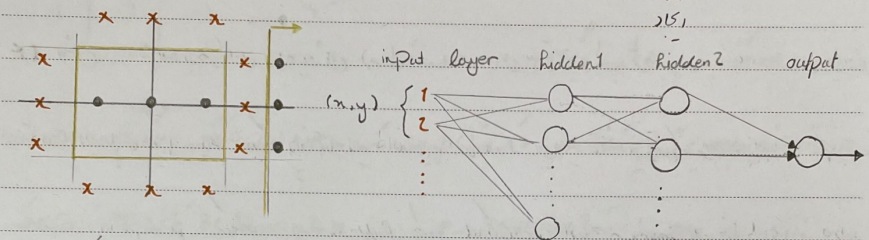 x x x
x x
x x
x x
x x x
input layer hidden1 hidden2 output
(x,y) { 1
2